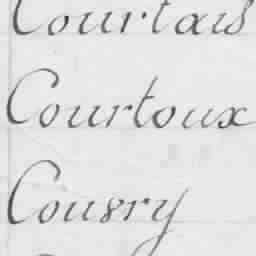 Courtais
Courtoux
Cousry